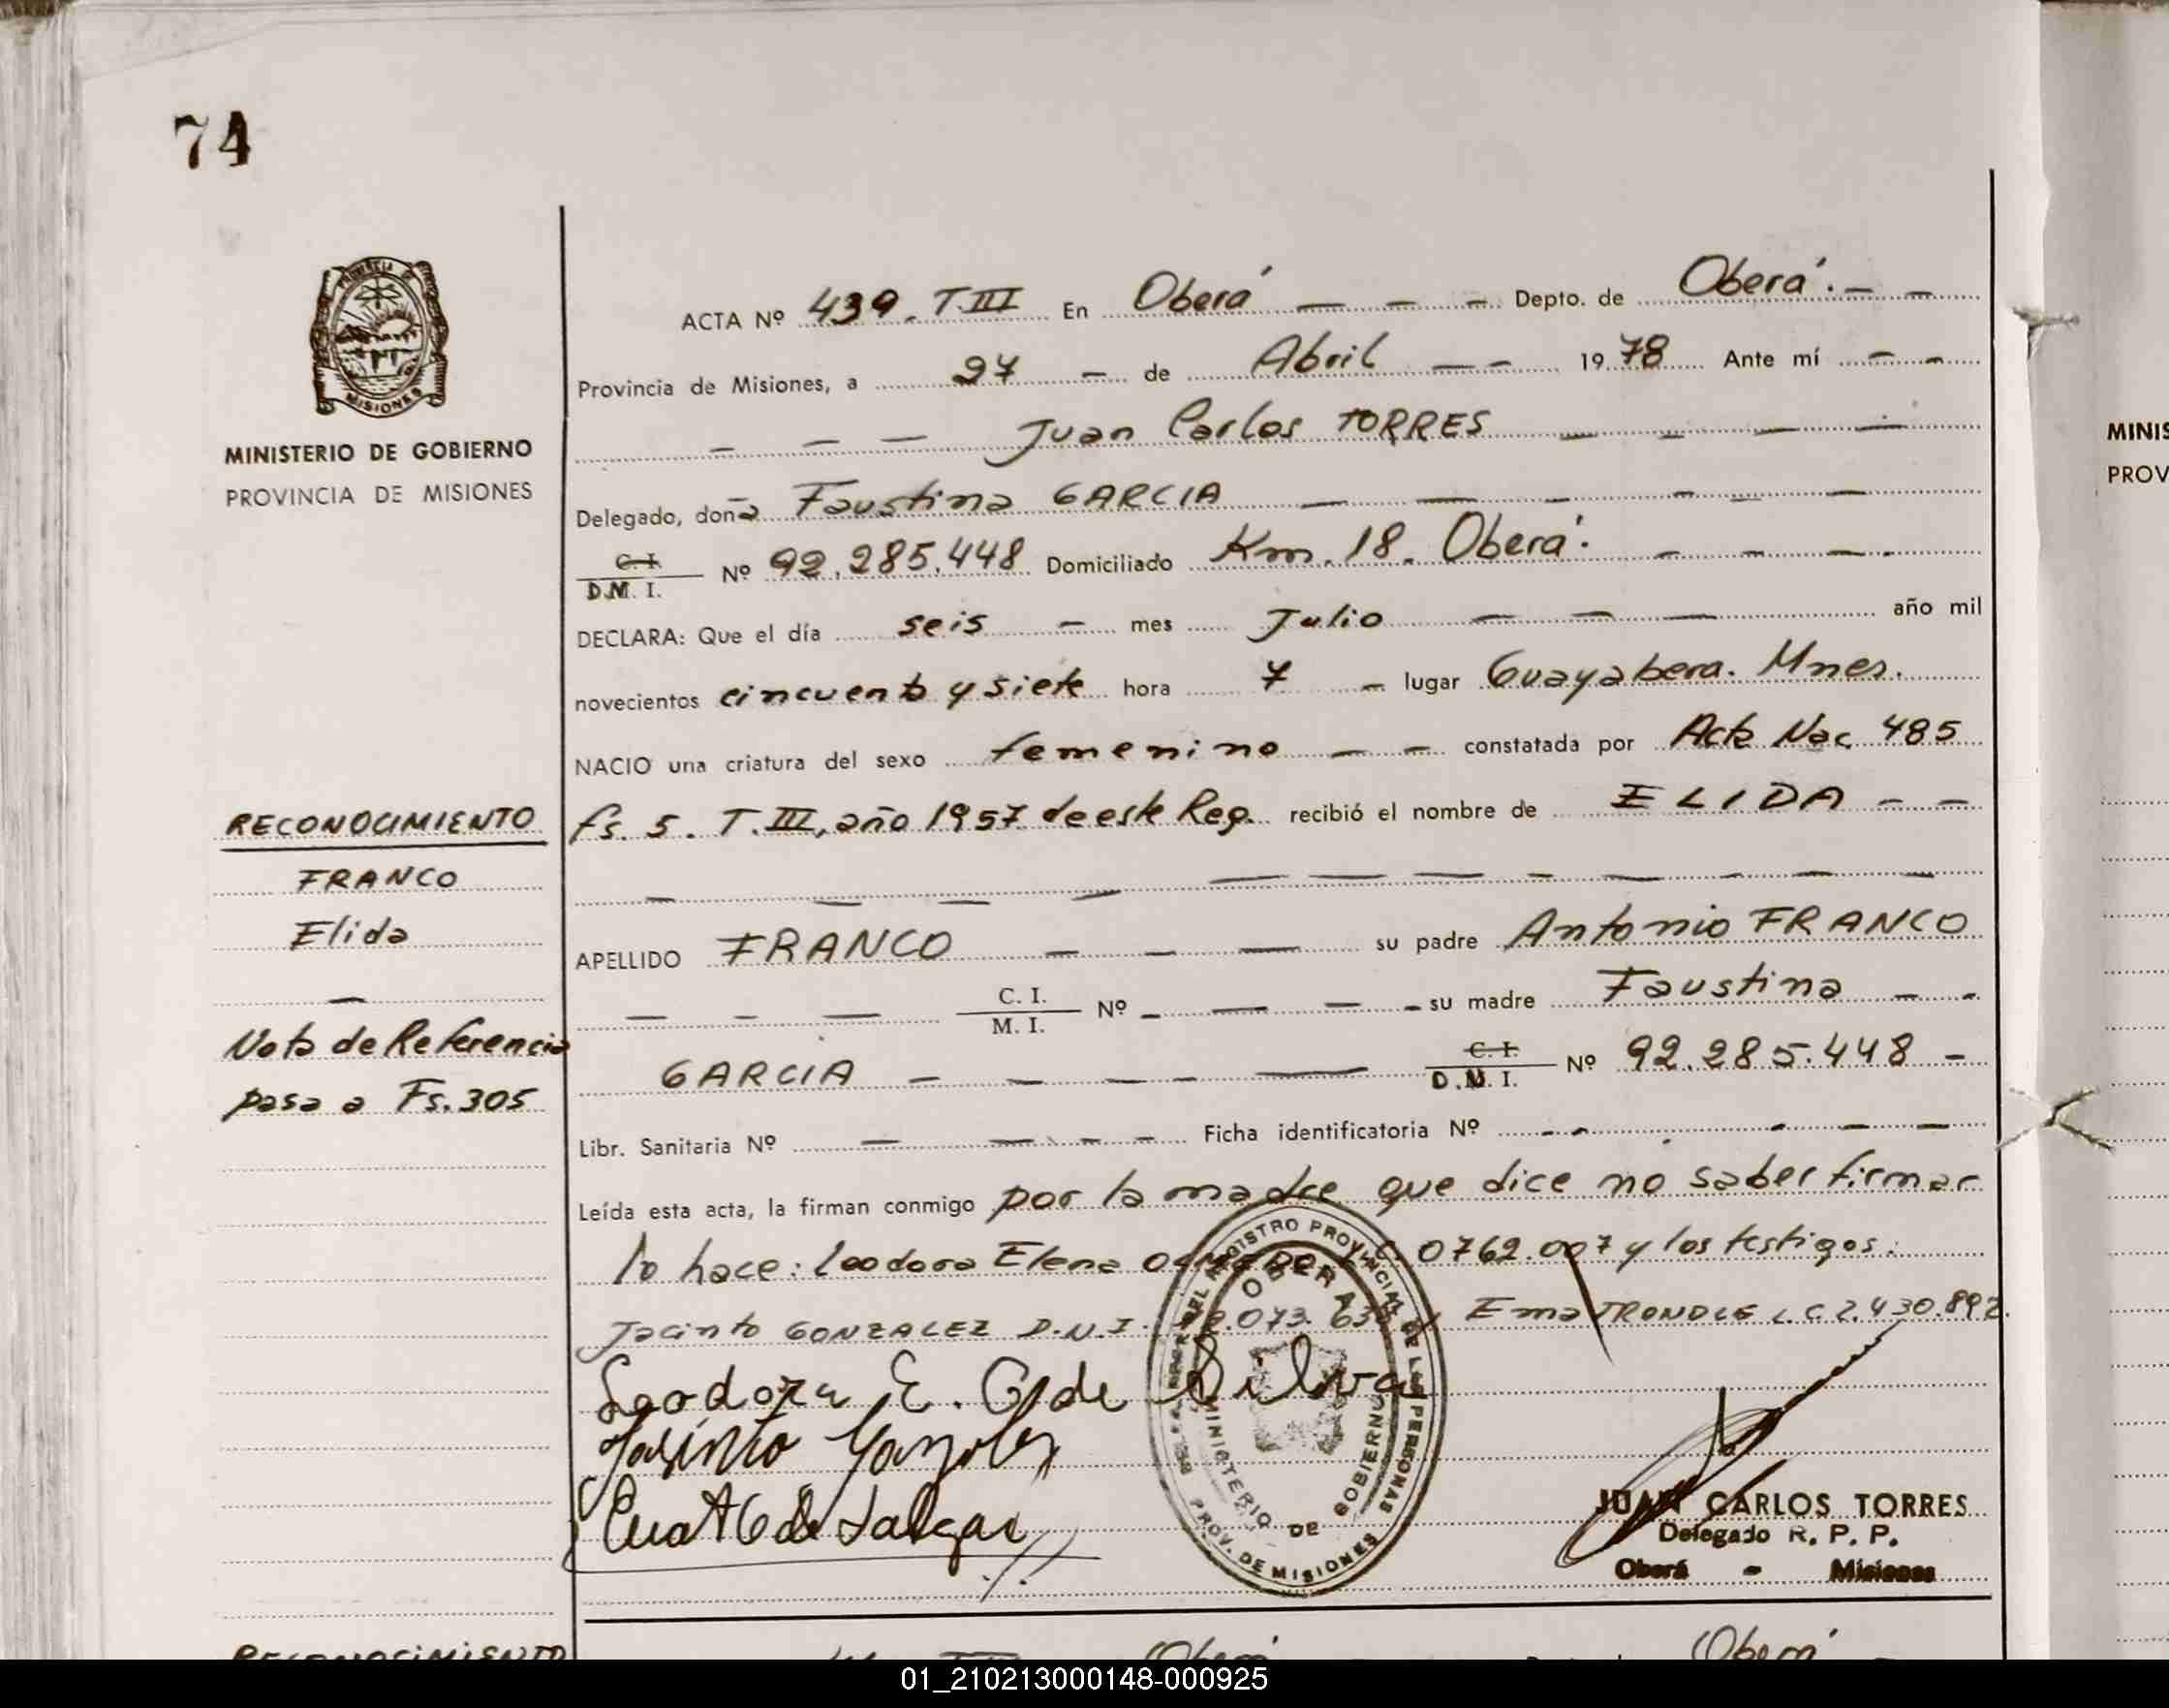 74
PROVINCIA DE
MISIONES
MINISTERIO DE GOBIERNO
PROVINCIA DE MISIONES
ACTA Nº 439. T.III En Oberá — — — Depto. de Oberá. — —
Provincia de Misiones, a 27 — de Abril — — 1978 Ante mí — —
— — — Juan Carlos TORRES — — — —
Delegado, doña Faustina GARCIA — — — — — —
C. I.
D.M. I. Nº 92.285.448 Domiciliado Km. 18. Oberá. — — —.
DECLARA: Que el día seis — mes Julio — — — año mil
novecientos cincuenta y siete hora 7 — lugar Guayabera. Mnes.
NACIO una criatura del sexo femenino — — constatada por Acta Nac 485
fs. 5. T.III, año 1957 de este Reg. recibió el nombre de ELIDA — —
— — — — — — — — — — — —
APELLIDO FRANCO — — — su padre Antonio FRANCO
— — — C. I.
M. I. Nº — — — — su madre Faustina — —
GARCIA — — — — — C. I.
D.N. I. Nº 92.285.448 —
Libr. Sanitaria Nº — — — — Ficha identificatoria Nº — — — — —
Leída esta acta, la firman conmigo por la madre que dice no saber firmar
lo hace: Leodora Elena 0762.007 y los testigos:
Jacinto GONZALEZ D.N.I. 073. Ema TRONDLE L.C. 2.430.892.
Leodora E. O de Silva
Jacinto Gonzalez
RECONOCIMIENTO
FRANCO
Elida
—
Nota de Referencia
pasa a Fs. 305
REGISTRO PROVINCIAL DE LAS PERSONAS
OBERA
MINISTERIO DE GOBIERNO
PROV. DE MISIONES
JUAN CARLOS TORRES
Delegado R. P. P.
Oberá - Misiones
RECONOCIMIENTO
Oberá
Oberá
MINIS
PROV
01_210213000148-000925